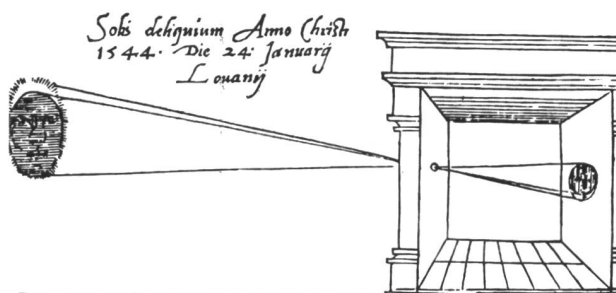 Solis deliquium Anno Christi
1544. Die 24 Januarij
Lovanij